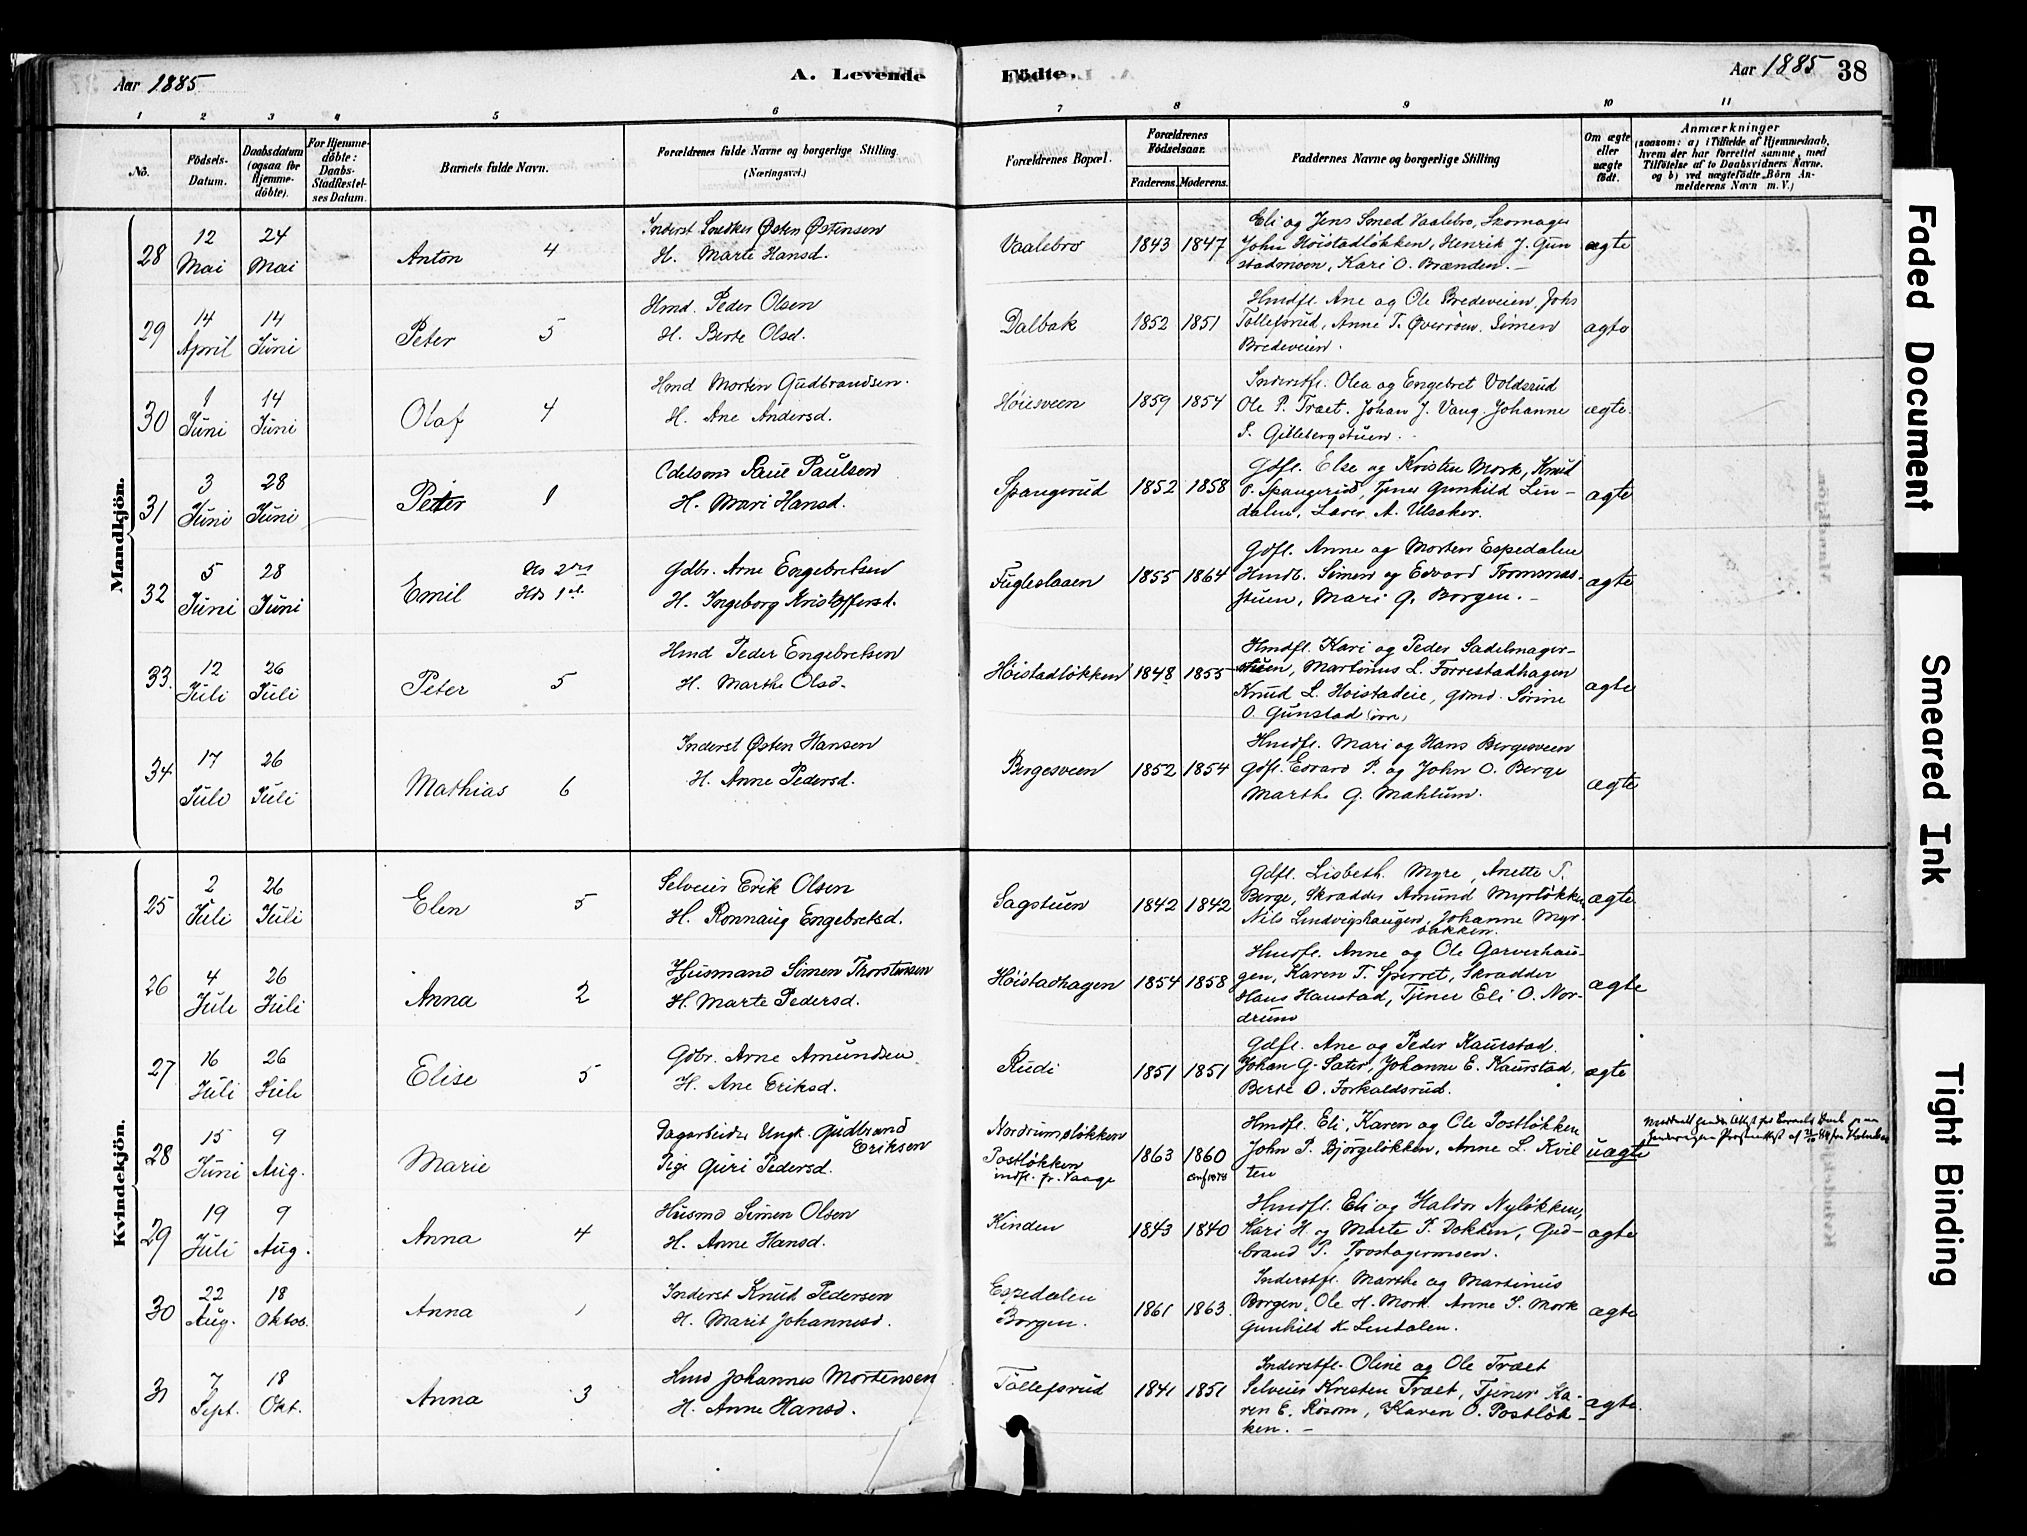 Aar 1885
A. Levende
Fødte.
Aar 1885
38
1 2 3 4 5 6 7 8 9 10 11
No.
Fødsels-
Datum.
Daabsdatum
(ogsaa for
Hjemme-
døbte).
For Hjemme-
døbte:
Daabs-
Stadfæstel-
ses Datum.
Barnets fulde Navn.
Forældrenes fulde Navne og borgerlige Stilling.
(Næringsvei.)
Forældrenes Bopæl.
Forældrenes
Fødselsaar.
Faderens. Moderens.
Faddernes Navne og borgerlige Stilling
Om ægte
eller
uægte
født.
Anmærkninger
(saasom: a) i Tilfælde af Hjemmedaab,
hvem der har forrettet samme, med
Tilføielse af to Daabsvidners Navne,
og b) ved uægtefødte Børn An-
melderens Navn m. V.)
Mandkjön.
28
12
Mai
24
Mai
Anton 4
Inderst Snedker Østen Østensen
H. Marte Hansd.
Vaalebro
1843 1847
Eli og Jens Smed Vaalebro, Skomager
John Høistadløkken, Henrik J. Gun
stadmoen, Kari O. Brænden. -
ægte
29
14
April
14
Juni
Peter 5
Hmd. Peder Olsen
H. Berte Olsd.
Dalbak
1852 1851
Hmdfl. Ane og Ole Bredeveien, Johs
Tollefsrud, Anne T. Øverrøen, Simen
Bredeveien.
ægte
30
1
Juni
14
Juni
Olaf 4
Hmd Morten Gudbrandsen.
H. Ane Andersd.
Høiesveen
1859 1854
Inderstfl. Olea og Engebret Voldsrud
Ole P. Træet. Johan J. Vang, Johanne
P. Gillebergstuen.
ægte.
31
3
Juni
28
Juni
Peter 1
Odelsøn Paul Paulsen
H. Mari Hansd.
Spangerud
1852 1858
Gdfl. Else og Kristen Mork, Knud
P. Spangerud, Tjener Gunhild Lin-
dalen, Lærer A. Ulsaker.
ægte
32
5
Juni
28
Juni
Emil
Ms 2det
Hds 1st
Gdbr. Arne Engebretsen
H. Ingeborg Kristoffersd.
Fugleslaaen
1855 1864
Gdfl. Anne og Morten Espedalen
Hmdb. Simen og Edvard Tromsnæs-
stuen, Mari G. Borgen. -
ægte
33.
12
Juli
26
Juli
Peter 5
Hmd Peder Engebretsen
H. Marthe Olsd.
Høistadløkken
1848 1855
Hmdfl. Kari og Peder Sadelmager-
stuen, Martinus L. Forrestadhagen
Knud L. Høistadeie, Gdmd. Sørine
O. Gunstad
ægte
34
17
Juli
26
Juli
Mathias 6
Inderst Østen Hansen
H. Anne Pedersd.
Bergesveen
1852 1854
Hmdfl. Mari og Hans Bergesveen
Gdfl. Edvard P. og John O. Berge
Marthe G. Mahlum.
ægte
Kvindekjön.
25
2
Juli
26
Juli
Elen 5
Selveier Erik Olsen
H. Rønnaug Engebretsd.
Sagstuen
1842 1842
Gdfl. Lisbeth Myre, Anette P.
Berge, Skrædder Amund Myrløkken
Nils Lundvigshaugen, Johanne Myr-
bakken.
ægte
26
4
Juli
26
Juli
Anna 2
Husmand Simen Thorstensen
H. Marte Pedersd.
Høistadhagen
1854 1858
Hmdfl. Anne og Ole Garverhau-
gen, Karen T. Sperret, Skrædder
Hans Haustad, Tjener Eli O. Nor-
drum
ægte
27
16
Juli
26
Juli
Elise 5
Gdbr. Arne Amundsen
H. Ane Eriksd.
Rudi
1851 1851
Gdfl. Ane og Peder Kaurstad.
Johan G. Sæter, Johanne E. Kaurstad,
Berte O. Torkaldsrud.
ægte
28
15
Juni
9
Aug.
Marie
Dagarbeider Ungk. Gudbrand
Eriksen
Pige Guri Pedersd.
Nordrumsløkken
Postløkken
indfl. fr. Vaage
1863 1860
conf 1878
Hmdfl. Eli, Karen og Ole Postløkken
John P. Bjørgeløkken, Anne L. Kvil
ten
uægte
29
19
Juli
9
Aug.
Anna 4
Husmd Simen Olsen
H. Anne Hansd.
Kinden
1843 1840
Hmdfl. Eli og Haldor Nyløkken,
Kari H. og Marte P. Dokken, Gud-
brand P.
ægte
30
22
Aug.
18
Oktob.
Anna 1
Inderst Knud Pedersen
H. Marit Johannesd.
Espedalen
Borgen.
1861 1863
Inderstfl. Marthe og Martinus
Borgen, Ole H. Mork. Anne P. Mork
Gunhild K. Lindalen.
ægte
31
7
Sept.
18
Okt.
Anna 3
Hmd Johannes Mortensen
H. Anne Hansd.
Tollefsrud
1841 1851
Inderstfl. Oline og Ole Træet
Selveier Kristen Træet, Tjener Ka-
ren E. Røsom, Karen O. Postløk-
ken. -
ægte.
Faded Document
Smeared Ink
Tight Binding